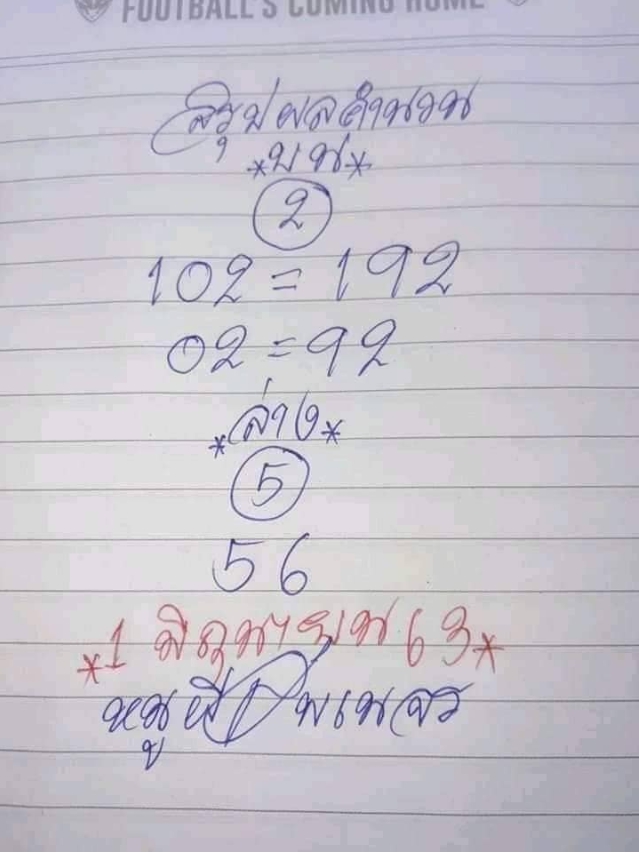 FOOTBALL'S COMING HOME
สรุปผลคำนวน
*บน*
2
102 = 192
02 = 92
*ล่าง*
5
56
*1 มิถุนายน 63*
หนู